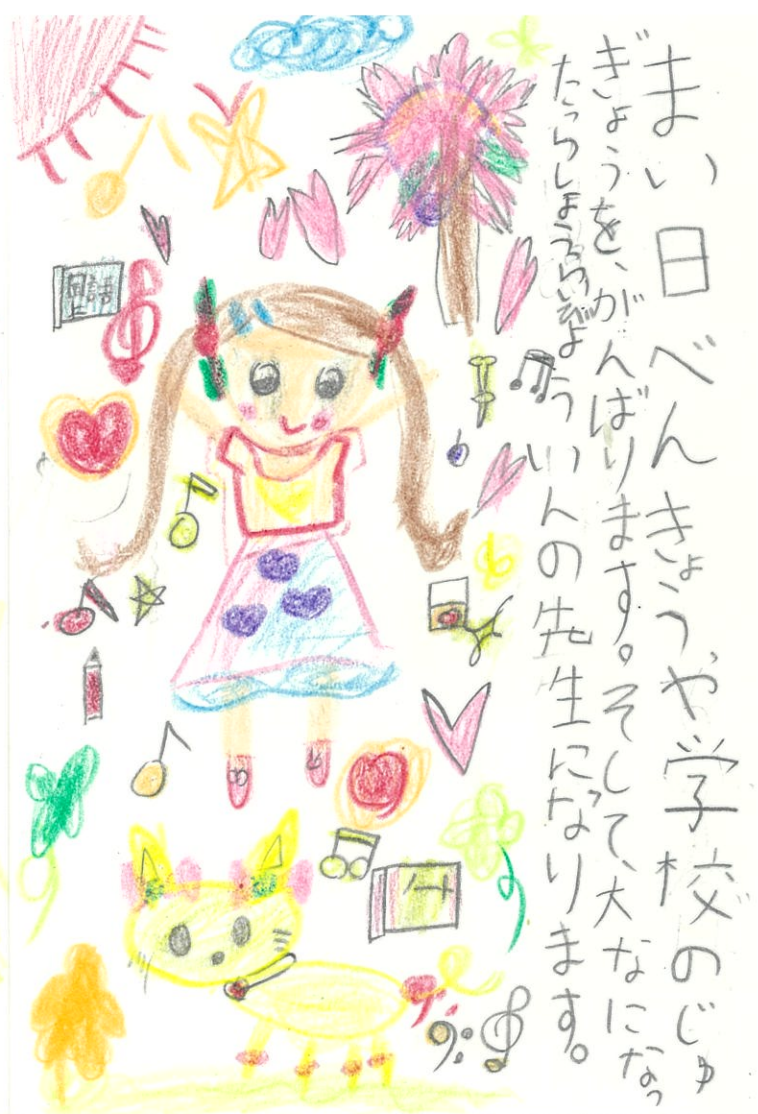 まい日べんきょうや学校のじゅ
ぎょうを、がんばります。そして、大なになっ
たらしょうらいびよういんの先生になります。
国語